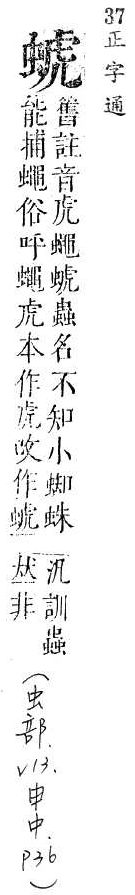 37
正字通
虩
舊註音虎蠅虩蟲名不知小蜘蛛
能捕蠅俗呼蠅虎本作虎改作虩
汎訓蟲
𠀤非
(虫部. V13. 申中. P36)